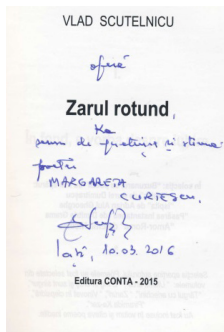 VLAD SCUTELNICU
oferă
Zarul rotund,
semn de prețuire și stima
MARGARETA
CURTESCU.
Iași, 10.03.2016
Editura CONTA - 2015